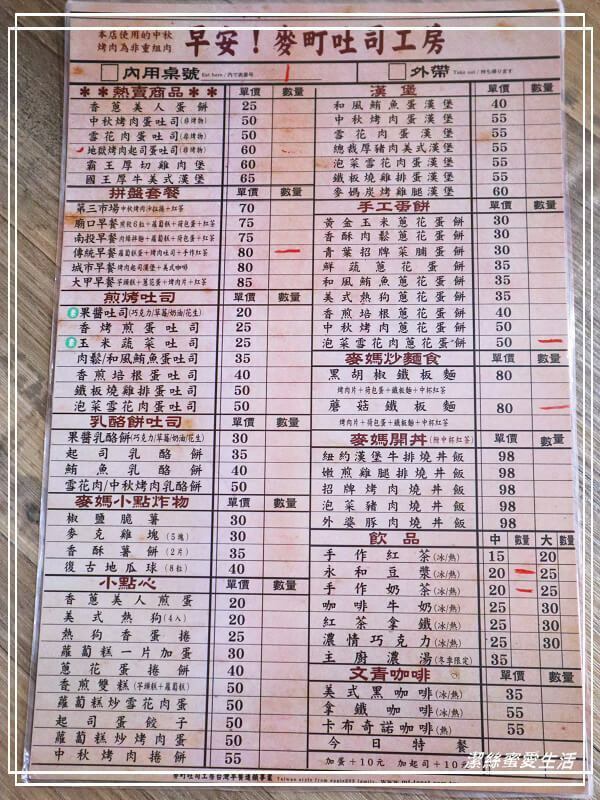 本店使用的中秋
烤肉為非重組肉
早安！麥町吐司工房
內用桌號 Eat here / 內で表番号 1
外帶 Take out / 持ち帰ります
**熱賣商品** 單價 數量
香蔥美人蛋餅 25
中秋烤肉蛋吐司(非烤物) 50
雪花肉蛋吐司(非烤物) 50
地獄烤肉起司蛋吐司(非烤物) 60
霸王厚切雞肉堡 60
國王厚牛美式漢堡 65
拼盤套餐 單價 數量
第三市場 中秋烤肉沙拉捲+紅茶 70
廟口早餐 煎餃6粒+蘿蔔糕+荷包蛋+紅茶 75
南投早餐 肉絲拌麵+蘿蔔糕+荷包蛋+紅茶 75
傳統早餐 蘿蔔糕蛋+烤肉吐司+手作紅茶 80
城市早餐 烤肉起司漢堡+美式咖啡 80
大甲早餐 芋頭糕+蔥花蛋+烤肉片+紅茶 85
煎烤吐司 單價 數量
果醬吐司(巧克力/草莓/奶油/花生) 20
香烤煎蛋吐司 25
玉米蔬菜吐司 25
肉鬆/和風鮪魚蛋吐司 35
香煎培根蛋吐司 40
鐵板燒雞排蛋吐司 50
泡菜雪花肉蛋吐司 50
乳酪餅吐司 單價 數量
果醬乳酪餅(巧克力/草莓/奶油/花生) 30
起司乳酪餅 35
鮪魚乳酪餅 40
雪花肉/中秋烤肉乳酪餅 50
麥媽小點炸物 單價 數量
椒鹽脆薯 30
麥克雞塊(5塊) 30
香酥薯餅(2片) 35
復古地瓜球(8粒) 40
小點心 單價 數量
香蔥美人煎蛋 20
美式熱狗(4入) 20
熱狗香蛋捲 25
蘿蔔糕一片加蛋 30
蔥花蛋捲餅 40
香煎雙糕(芋頭糕+蘿蔔糕) 50
蘿蔔糕炒雪花肉蛋 50
起司蛋餃子 50
蘿蔔糕炒烤肉蛋 50
中秋烤肉捲餅 55
漢堡 單價 數量
和風鮪魚蛋漢堡 40
中秋烤肉蛋漢堡 55
雪花蛋漢堡 55
總裁厚豬肉美式漢堡 55
泡菜雪花肉蛋漢堡 55
鐵板燒雞排蛋漢堡 55
麥媽炭烤雞腿漢堡 60
手工蛋餅 單價 數量
黃金玉米蔥花蛋餅 30
香酥肉鬆蔥花蛋餅 30
青葉招牌菜脯蛋餅 30
鮮蔬蔥花蛋餅 35
和風鮪魚蔥花蛋餅 35
美式熱狗蔥花蛋餅 35
香煎培根蔥花蛋餅 40
中秋烤肉蔥花蛋餅 50
泡菜雪花肉蔥花蛋餅 50
麥媽炒麵食 單價 數量
黑胡椒鐵板麵 80
烤肉片+荷包蛋+鐵板麵+中杯紅茶
蘑菇鐵板麵 80
烤肉片+荷包蛋+鐵板麵+中杯紅茶
麥媽開丼(附中杯紅茶) 單價 數量
紐約漢堡牛排燒丼飯 98
嫩煎雞腿排燒丼飯 98
招牌烤肉燒丼飯 98
泡菜豬肉燒丼飯 98
外婆豚肉燒丼飯 98
飲品 中 數量 大 數量
手作紅茶(冰/熱) 15 20
永和豆漿(冰/熱) 20 25
手作奶茶(冰/熱) 20 25
咖啡牛奶(冰/熱) 25 30
紅茶拿鐵(冰/熱) 25 30
濃情巧克力(冰/熱) 25 30
主廚濃湯(冬季限定) 35
文青咖啡 單價 數量
美式黑咖啡(冰/熱) 35
拿鐵咖啡(冰/熱) 55
卡布奇諾咖啡(熱) 55
今日特餐
加蛋+10元 加起司+10元
麥町吐司工房台灣早餐連鎖事業
潔絲蜜愛生活